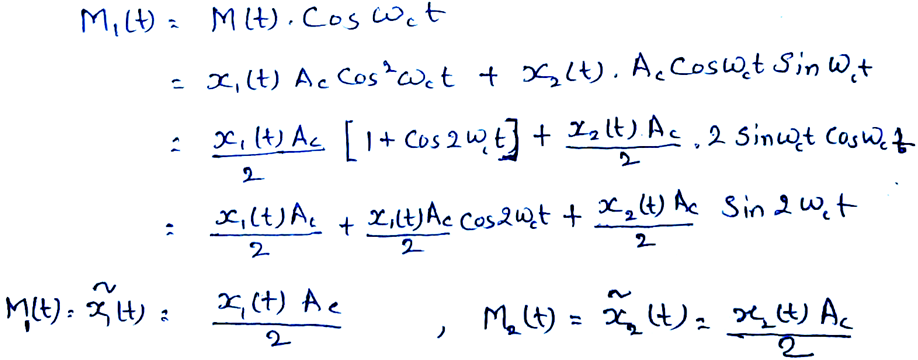 M₁(t) = M(t). Cos ω꜀t
= x₁(t) A꜀ Cos²ω꜀t + x₂(t). A꜀ Cosω꜀t Sin ω꜀t
= x₁(t) A꜀/2 [1 + Cos 2ω꜀t] + x₂(t) A꜀/2 . 2 Sinω꜀t Cosω꜀t
= x₁(t) A꜀/2 + x₁(t) A꜀/2 Cos2ω꜀t + x₂(t) A꜀/2 Sin 2ω꜀t
M₁(t) = x̃₁(t) = x₁(t) A꜀/2 , M₂(t) = x̃₂(t) = x₂(t) A꜀/2